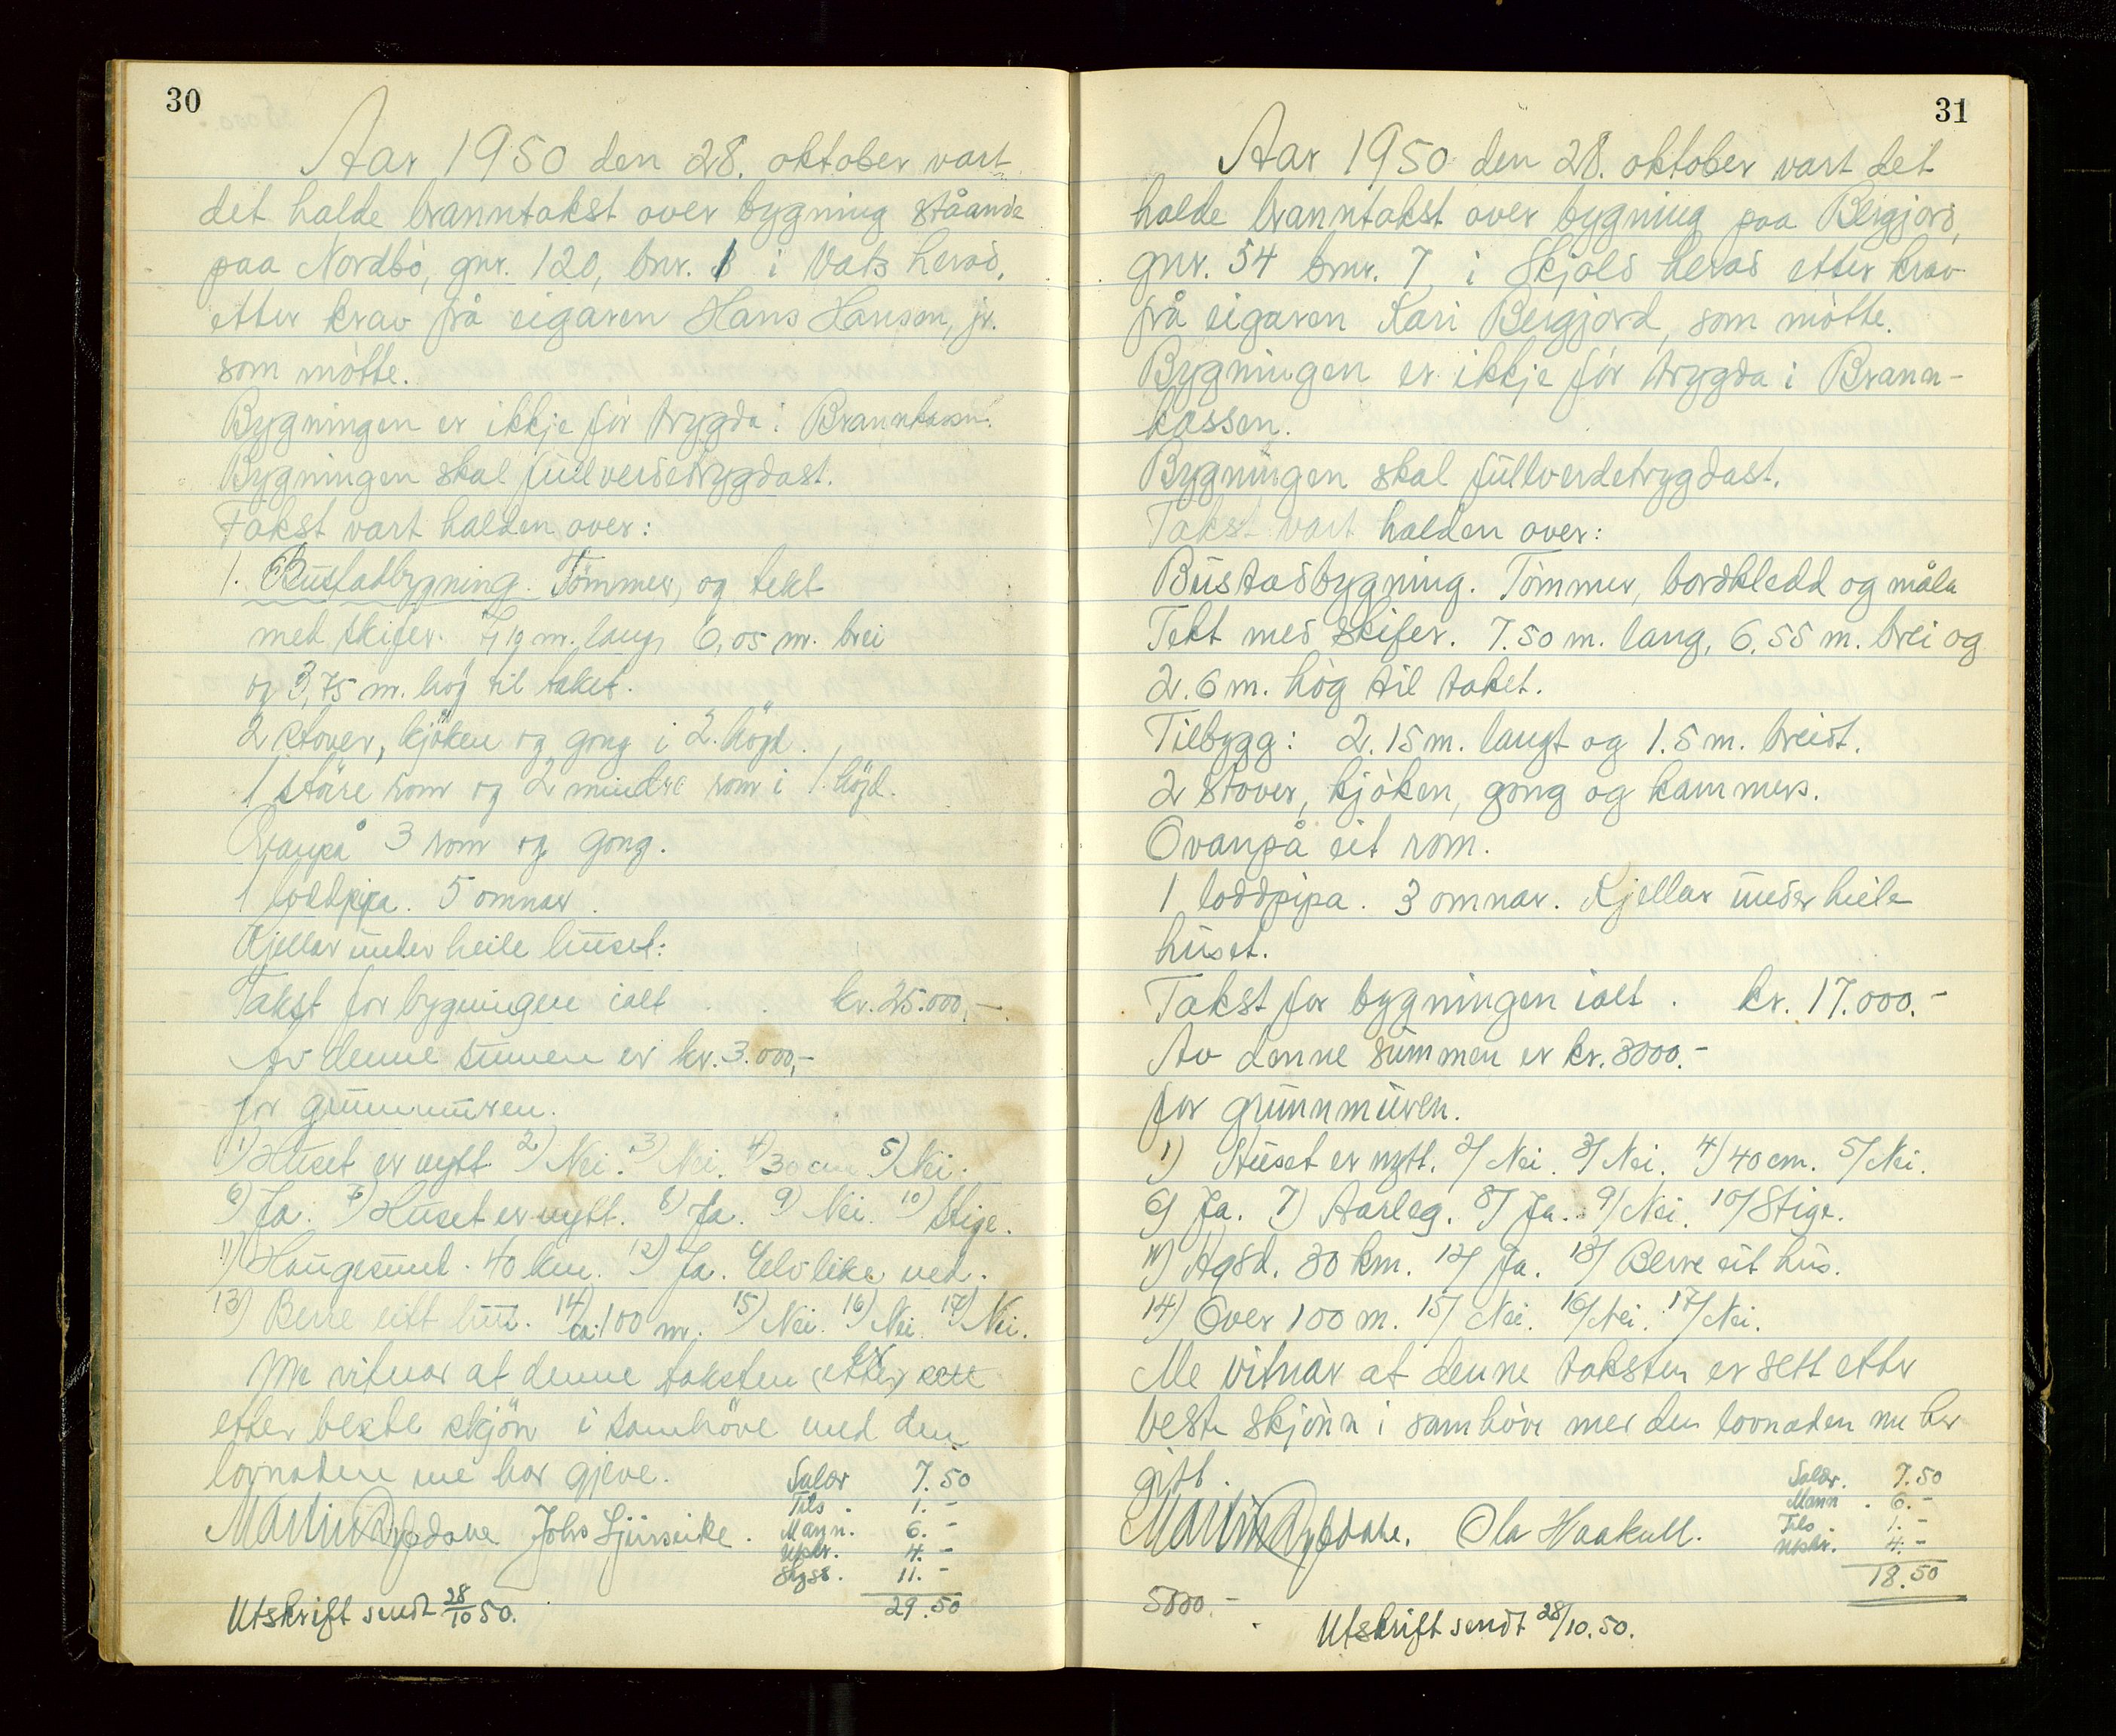 30
Aar 1950 den 28. oktober vart
det halde branntakst over bygning ståande
paa Nordbö, gnr. 120, bnr. 1 i Vats herad,
etter krav frå eigaren Hans Hansen, jr.
som mötte.
Bygningen er ikkje för trygda i Brannkassen.
Bygningen skal fullverdetrygdast.
Takst vart halden over:
1. Bustadbygning. Tömmer, og tekt
med skifer. 7,19 m. lang, 6,05 m. brei
og 3,75 m. hög til taket.
2 stover, kjöken og gong i 2. högd.
1 störe rom og 2 mindre rom i 1. högd.
Ovanpå 3 rom og gong.
1 loddpipa. 5 omnar.
Kjellar under heile huset:
Takst for bygningen ialt . . kr. 25.000,-
Av denne sumen er kr. 3.000,-
for grunnmuren.
1) Huset er nytt. 2) Nei. 3) Nei. 4) 30 cm 5) Nei.
6) Ja. 7) Huset er nytt. 8) Ja. 9) Nei. 10) Stige.
11) Haugesund. 40 km. 12) Ja. Elv like ved.
13) Berre eitt hus. 14) ca. 100 m. 15) Nei. 16) Nei. 17) Nei.
Me vitnar at denne taksten (etter) er sett
etter beste skjön i samhöve med den
lovnaden me har gjeve.
Salær 7.50
Tils. 1.-
Mann. 6.-
Utskr. 4.-
Skyss. 11.-
29.50
Utskrift sendt 28/10 50.
31
Aar 1950 den 28. oktober vart det
halde branntakst over bygning paa Bergjord,
gnr. 54 bnr. 7, i Skjold herad etter krav
frå eigaren Kari Bergjord, som mötte.
Bygningen er ikkje för trygda i Brann-
kassen.
Bygningen skal fullverdetrygdast.
Takst vart halden over:
Bustadbygning. Tömmer, bordkledd og måla
Tekt med skifer. 7.50 m. lang, 6.55 m. brei og
2.6 m. hög til taket.
Tilbygg: 2.15 m. langt og 1.5 m. breidt.
2 stover, kjöken, gong og kammers.
Ovanpå eit rom.
1 loddpipa. 3 omnar. Kjellar under heile
huset.
Takst for bygningen ialt . kr. 17.000.-
Av denne summen er kr. 3000.-
for grunnmuren.
1) Huset er nytt. 2) Nei. 3) Nei. 4) 40 cm. 5) Nei.
6) Ja. 7) Aarleg. 8) Ja. 9) Nei. 10) Stige.
11) 30 km. 12) Ja. 13) Berre eit hus.
14) Over 100 m. 15) Nei. 16) Nei. 17) Nei.
Me vitnar at denne taksten er sett etter
beste skjönn i samhöve med den lovnaden me har
gitt.
Martin Ola Haakull.
Salær. 7.50
Mann . 6.-
Tils 1.-
Utskr. 4.-
18.50
5000.-
Utskrift sendt 28/10.50.